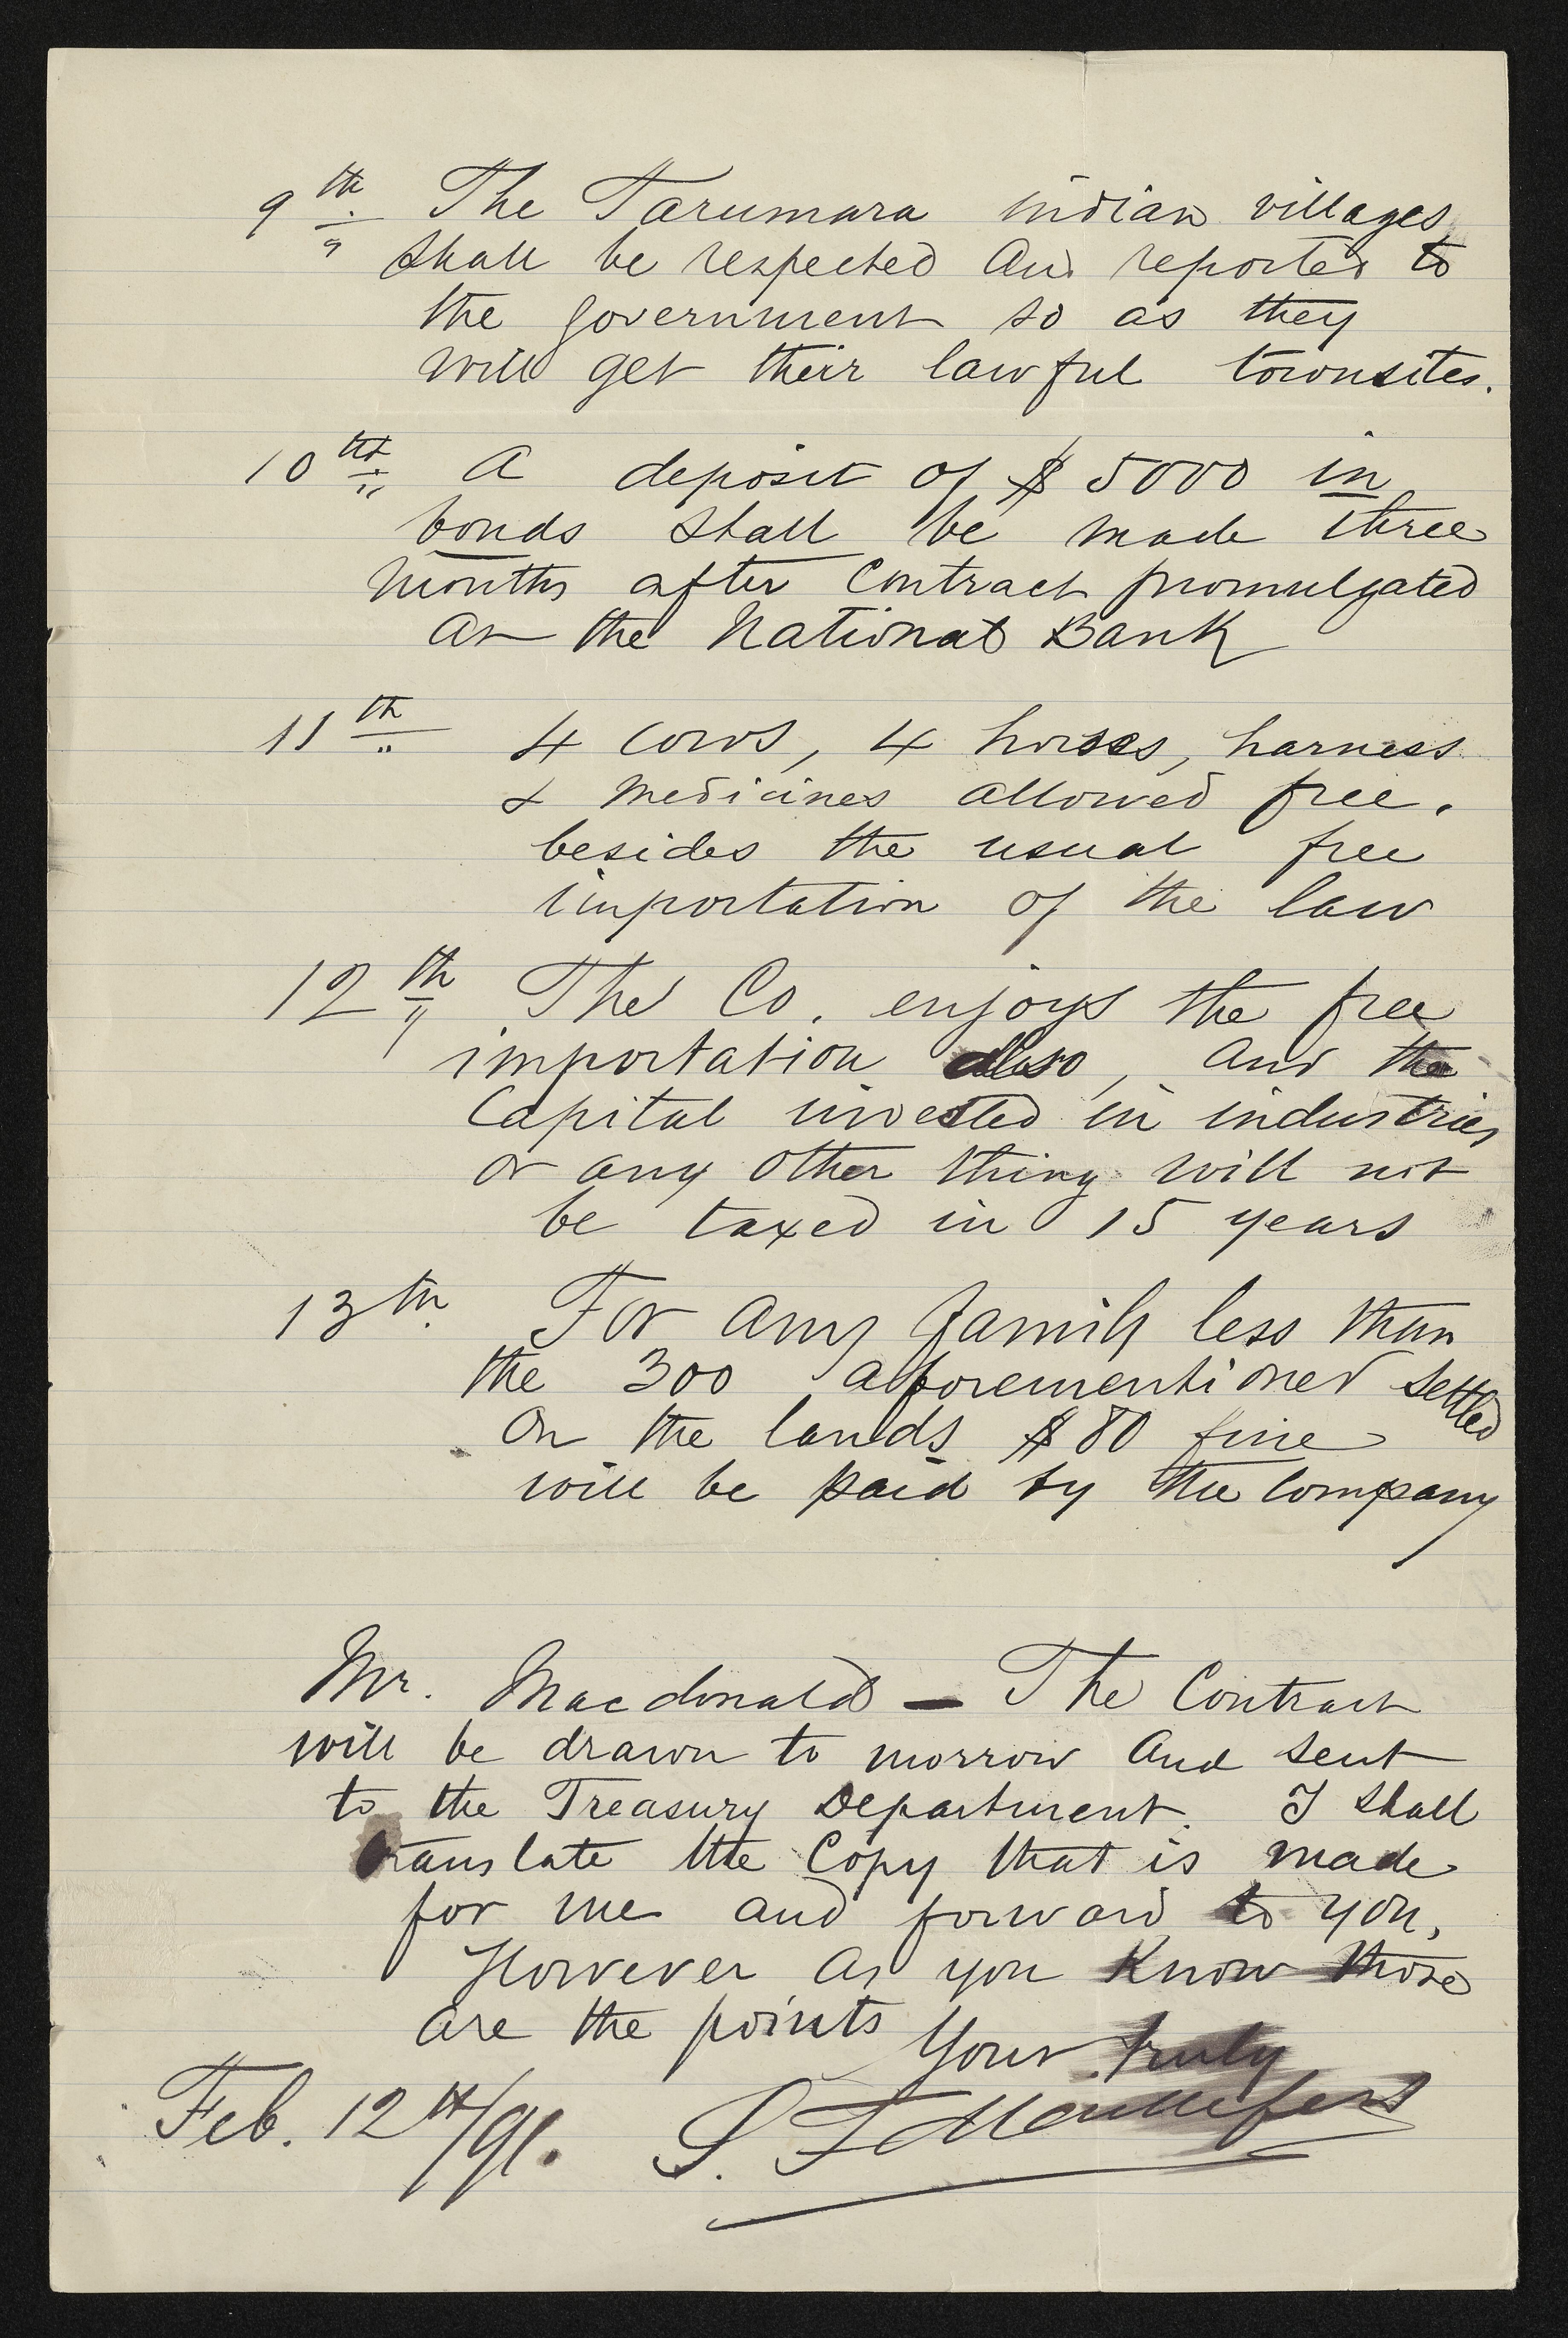 9th. The Tarumara indian villages
shall be respected and reported to
the government so as they
will get their lawful townsites.
10th. A deposit of $5000 in
bonds shall be made three
months after Contract promulgated
at the National Bank
11th 4 cows, 4 horses, harness
& medicines allowed free.
besides the usual free
importation of the law
12th The Co. enjoys the free
importation also, and the
Capital invested in industries
or any other thing will not
be taxed in 15 years
13th. For any family less than
the 300 aforementioned settled
on the lands $80 fine
will be paid by the Company
Mr. Macdonald — The Contract
will be drawn to morrow and sent
to the Treasury Department. I shall
translate the Copy that is made
for me and forward to you,
However as you know those
are the points
Your truly
Feb. 12th/91.